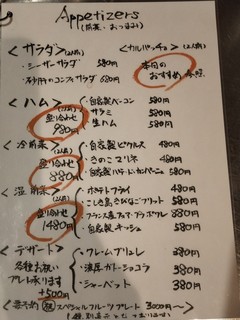 Appetizers
(前菜・おつまみ)
<サラダ>(2人前)
・シーザーサラダ 580円
・砂肝のコンフィサラダ 680円
<カルパッチョ>(2人前)
本日の
おすすめ参照
<ハム>(2人前)
盛り合わせ
980円
・自家製ベーコン 580円
・サラミ 580円
・生ハム 580円
<冷前菜>(2人前)
盛り合わせ
880円
・自家製ピクルス 480円
・きのこマリネ 480円
・自家製パテ・ド・カンパーニュ 580円
<温前菜>(2人前)
盛り合わせ
1480円
・ポテトフライ 480円
・自家製キッシュ 580円
<デザート>
各種お祝い
プレート承ります
+500円
・クレームブリュレ 380円
・濃厚ガトーショコラ 380円
・シャーベット 380円
スペシャルフルーツプレート 3000円〜